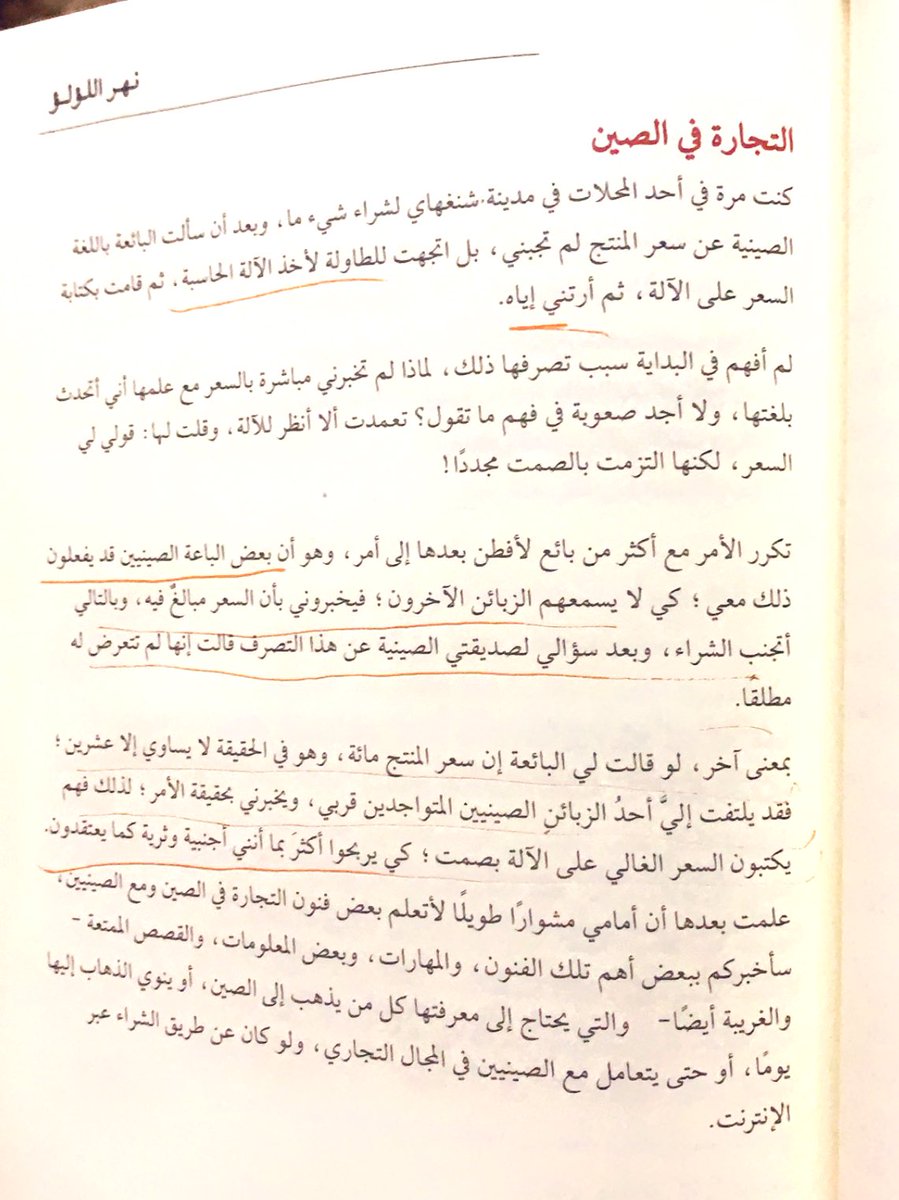 نهر اللؤلؤ
التجارة في الصين
كنت مرة في أحد المحلات في مدينة شنغهاي لشراء شيء ما، وبعد أن سألت البائعة باللغة
الصينية عن سعر المنتج لم تجبني، بل اتجهت للطاولة لأخذ الآلة الحاسبة، ثم قامت بكتابة
السعر على الآلة، ثم أرتني إياه.
لم أفهم في البداية سبب تصرفها ذلك، لماذا لم تخبرني مباشرة بالسعر مع علمها أني أتحدث
بلغتها، ولا أجد صعوبة في فهم ما تقول؟ تعمدت ألا أنظر للآلة، وقلت لها: قولي لي
السعر، لكنها التزمت بالصمت مجددًا!
تكرر الأمر مع أكثر من بائع لأفطن بعدها إلى أمر، وهو أن بعض الباعة الصينيين قد يفعلون
ذلك معي؛ كي لا يسمعهم الزبائن الآخرون؛ فيخبروني بأن السعر مبالغٌ فيه، وبالتالي
أتجنب الشراء، وبعد سؤالي لصديقتي الصينية عن هذا التصرف قالت إنها لم تتعرض له
مطلقًا.
بمعنى آخر، لو قالت لي البائعة إن سعر المنتج مائة، وهو في الحقيقة لا يساوي إلا عشرين؛
فقد يلتفت إليَّ أحدُ الزبائنِ الصينيين المتواجدين قربي، ويخبرني بحقيقة الأمر؛ لذلك فهم
يكتبون السعر الغالي على الآلة بصمت؛ كي يربحوا أكثرَ بما أنني أجنبية وثرية كما يعتقدون.
علمت بعدها أن أمامي مشوارًا طويلًا لأتعلم بعض فنون التجارة في الصين ومع الصينيين،
سأخبركم ببعض أهم تلك الفنون، والمهارات، وبعض المعلومات، والقصص الممتعة -
والغريبة أيضًا- والتي يحتاج إلى معرفتها كل من يذهب إلى الصين، أو ينوي الذهاب إليها
يومًا، أو حتى يتعامل مع الصينيين في المجال التجاري، ولو كان عن طريق الشراء عبر
الإنترنت.